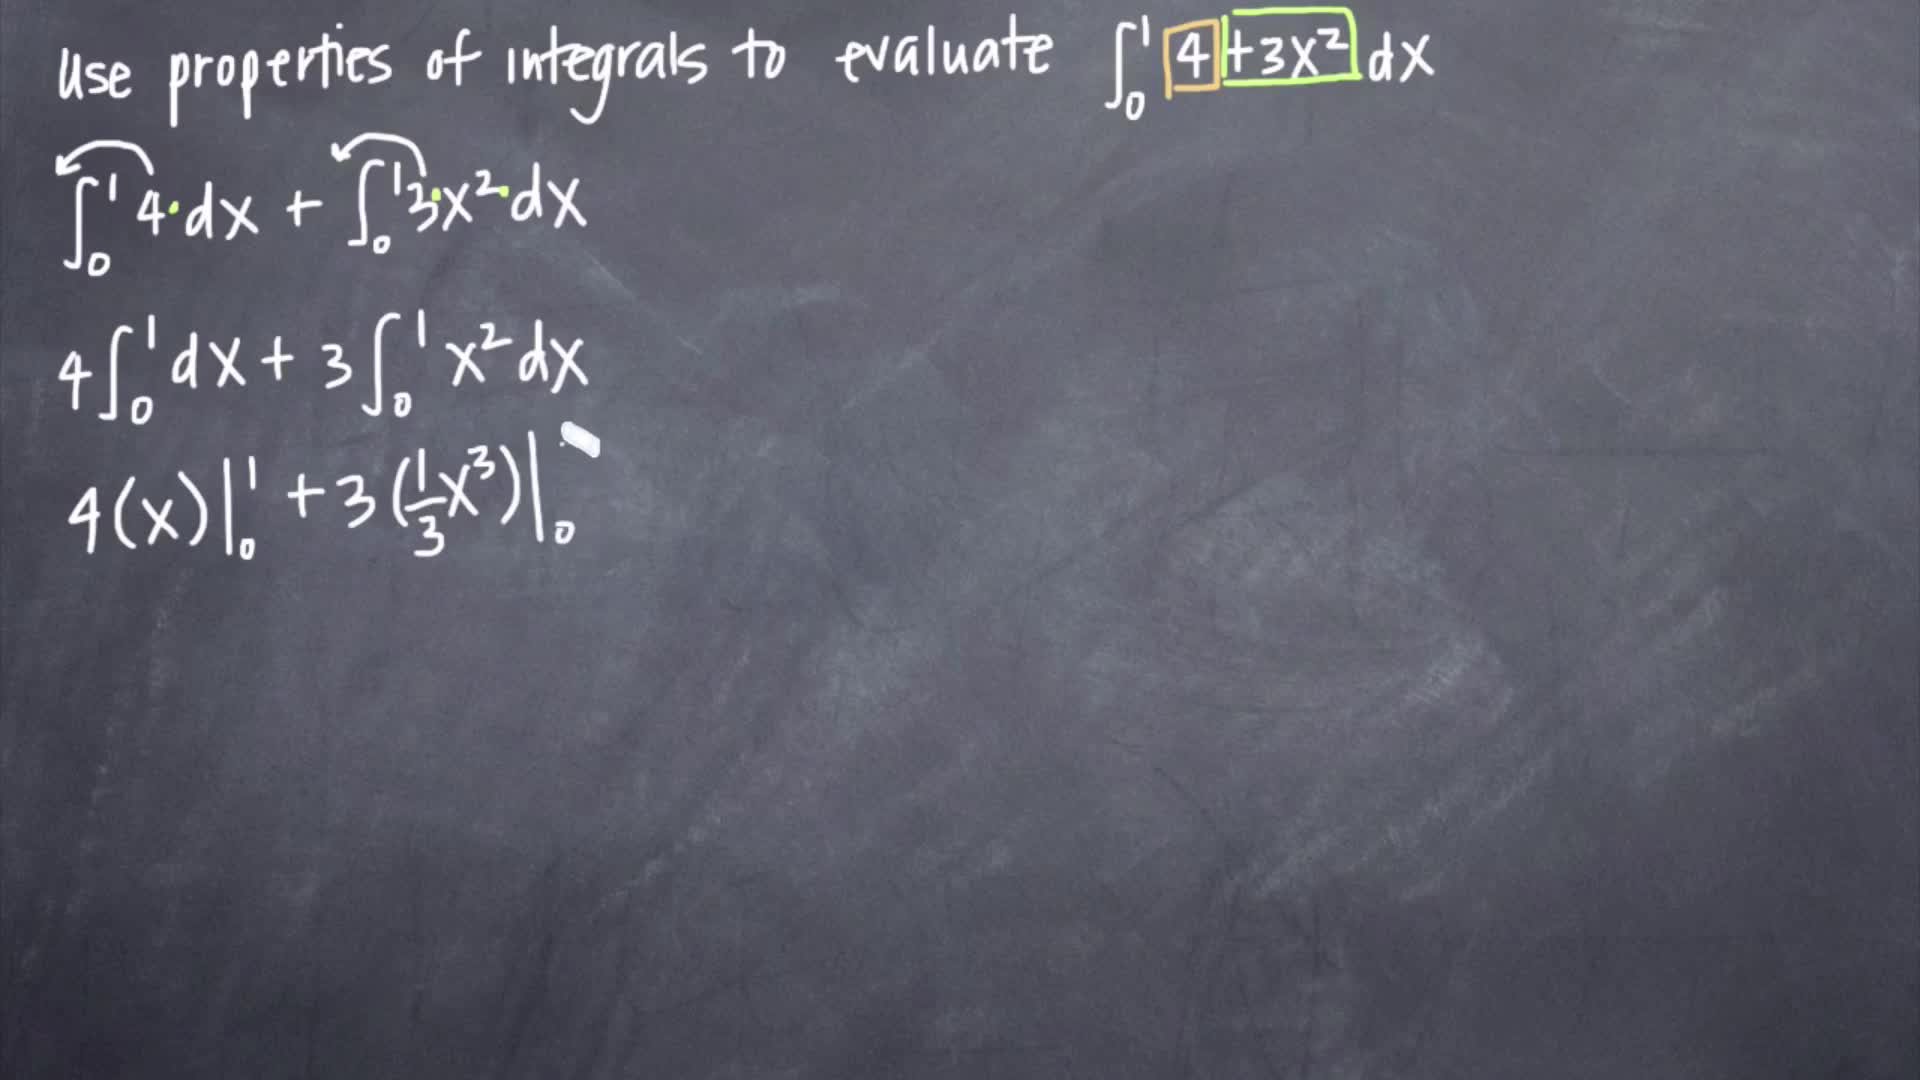 Use properties of integrals to evaluate ∫₀¹ 4 + 3x² dx
∫₀¹ 4 · dx + ∫₀¹ 3 · x² · dx
4 ∫₀¹ dx + 3 ∫₀¹ x² dx
4(x)|₀¹ + 3(1/3 x³)|₀